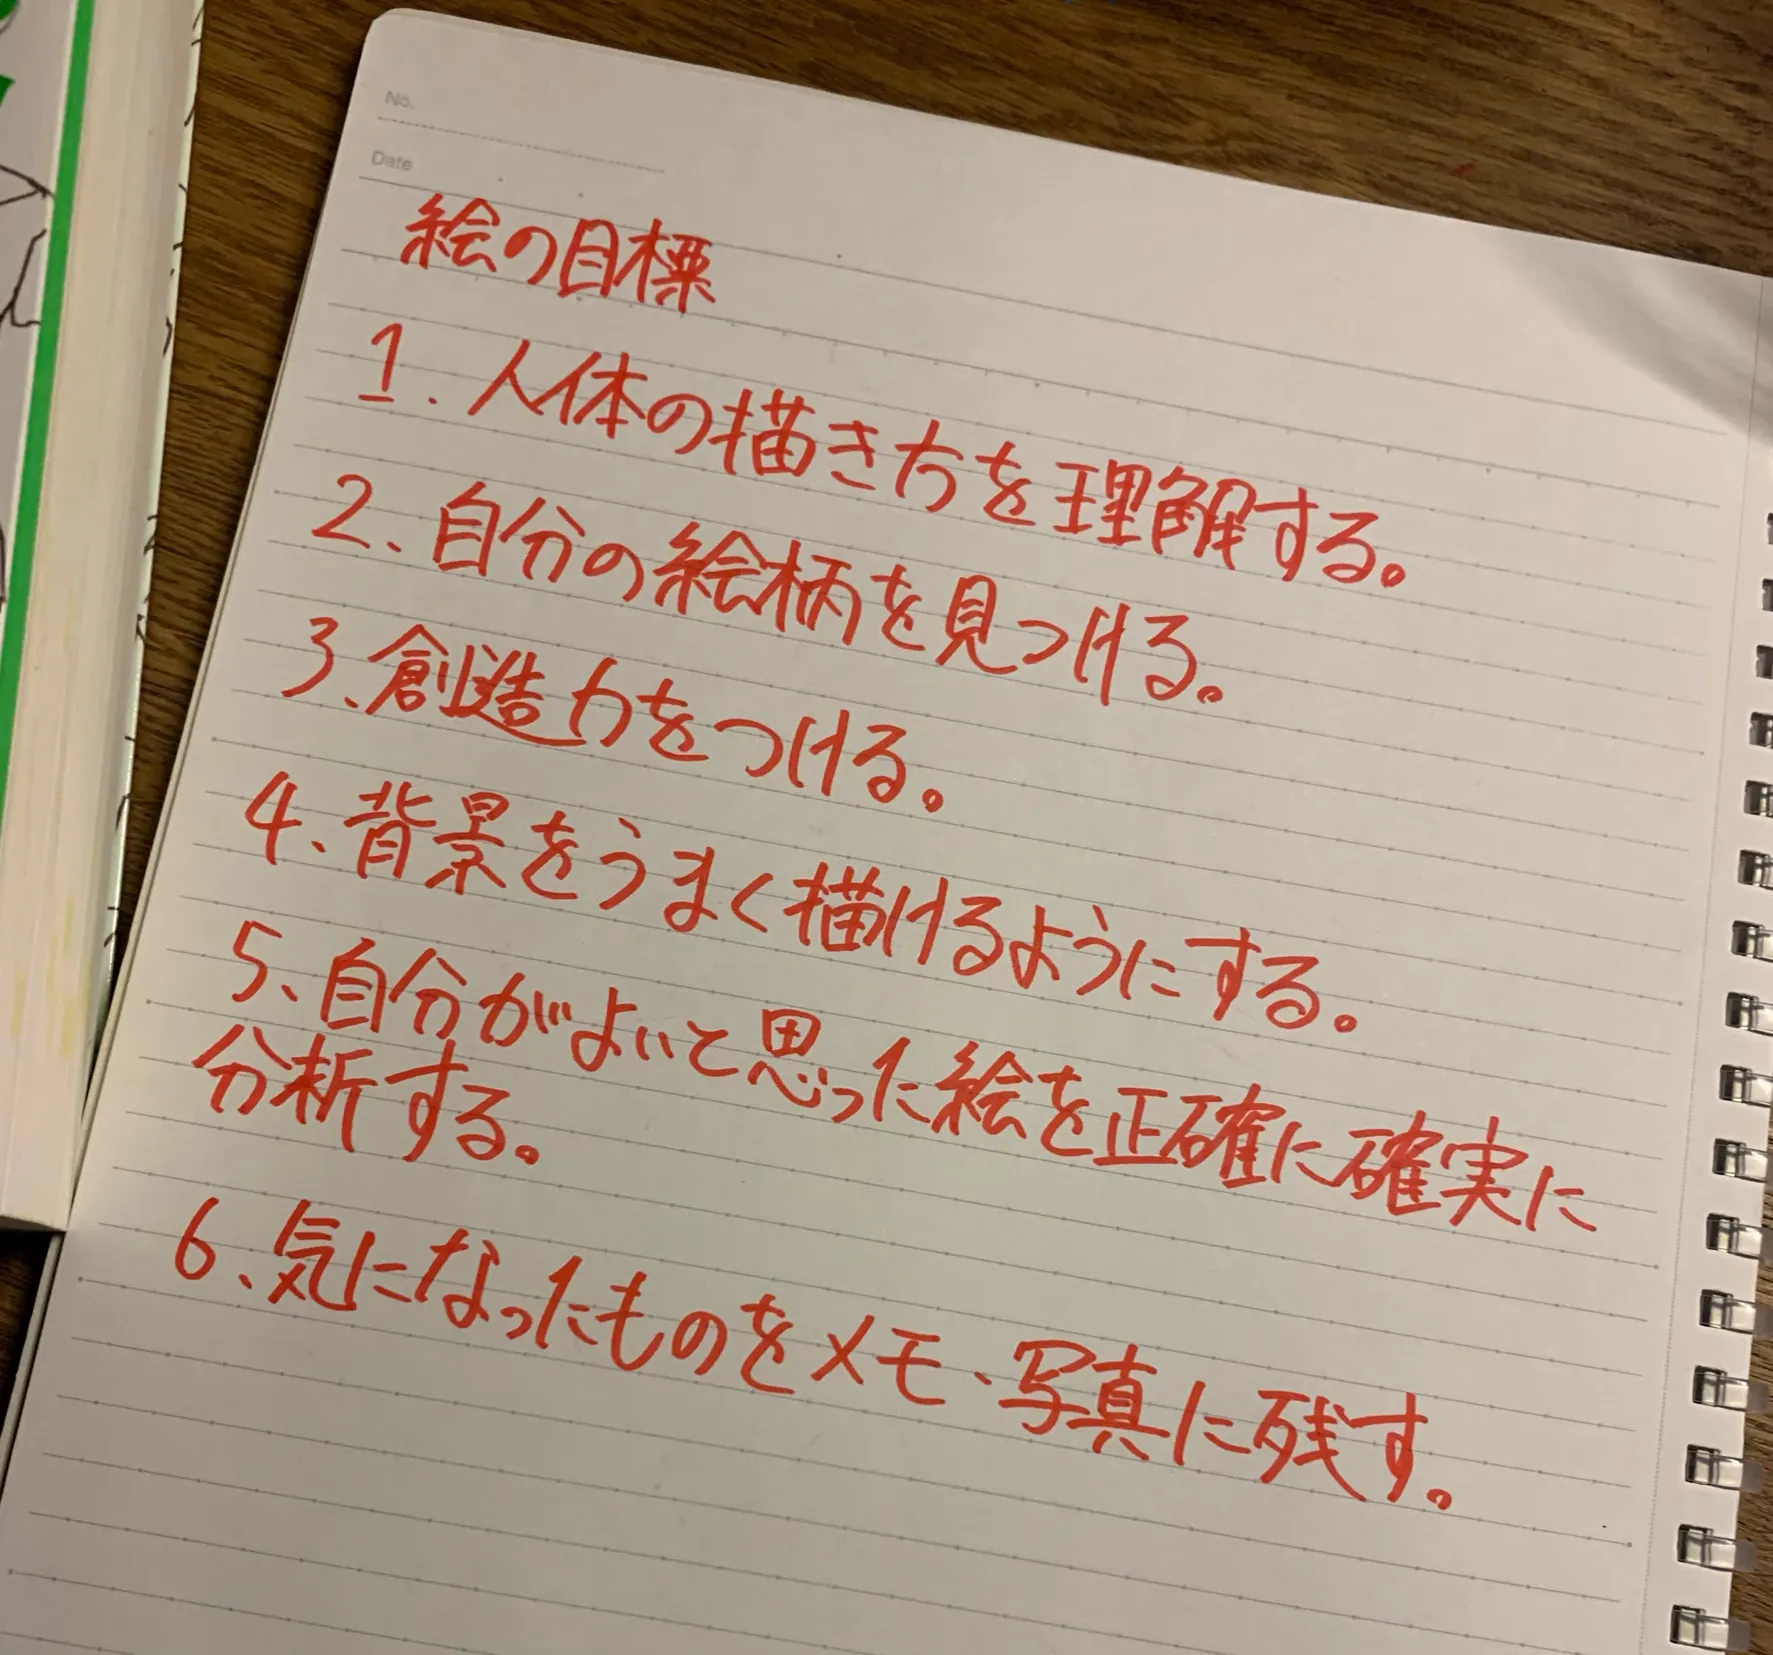 No.
Date
絵の目標
1. 人体の描き方を理解する。
2、自分の絵柄を見つける。
3、創造力をつける。
4、背景をうまく描けるようにする。
5、自分がよいと思った絵を正確に確実に
分析する。
6、気になったものをメモ、写真に残す。